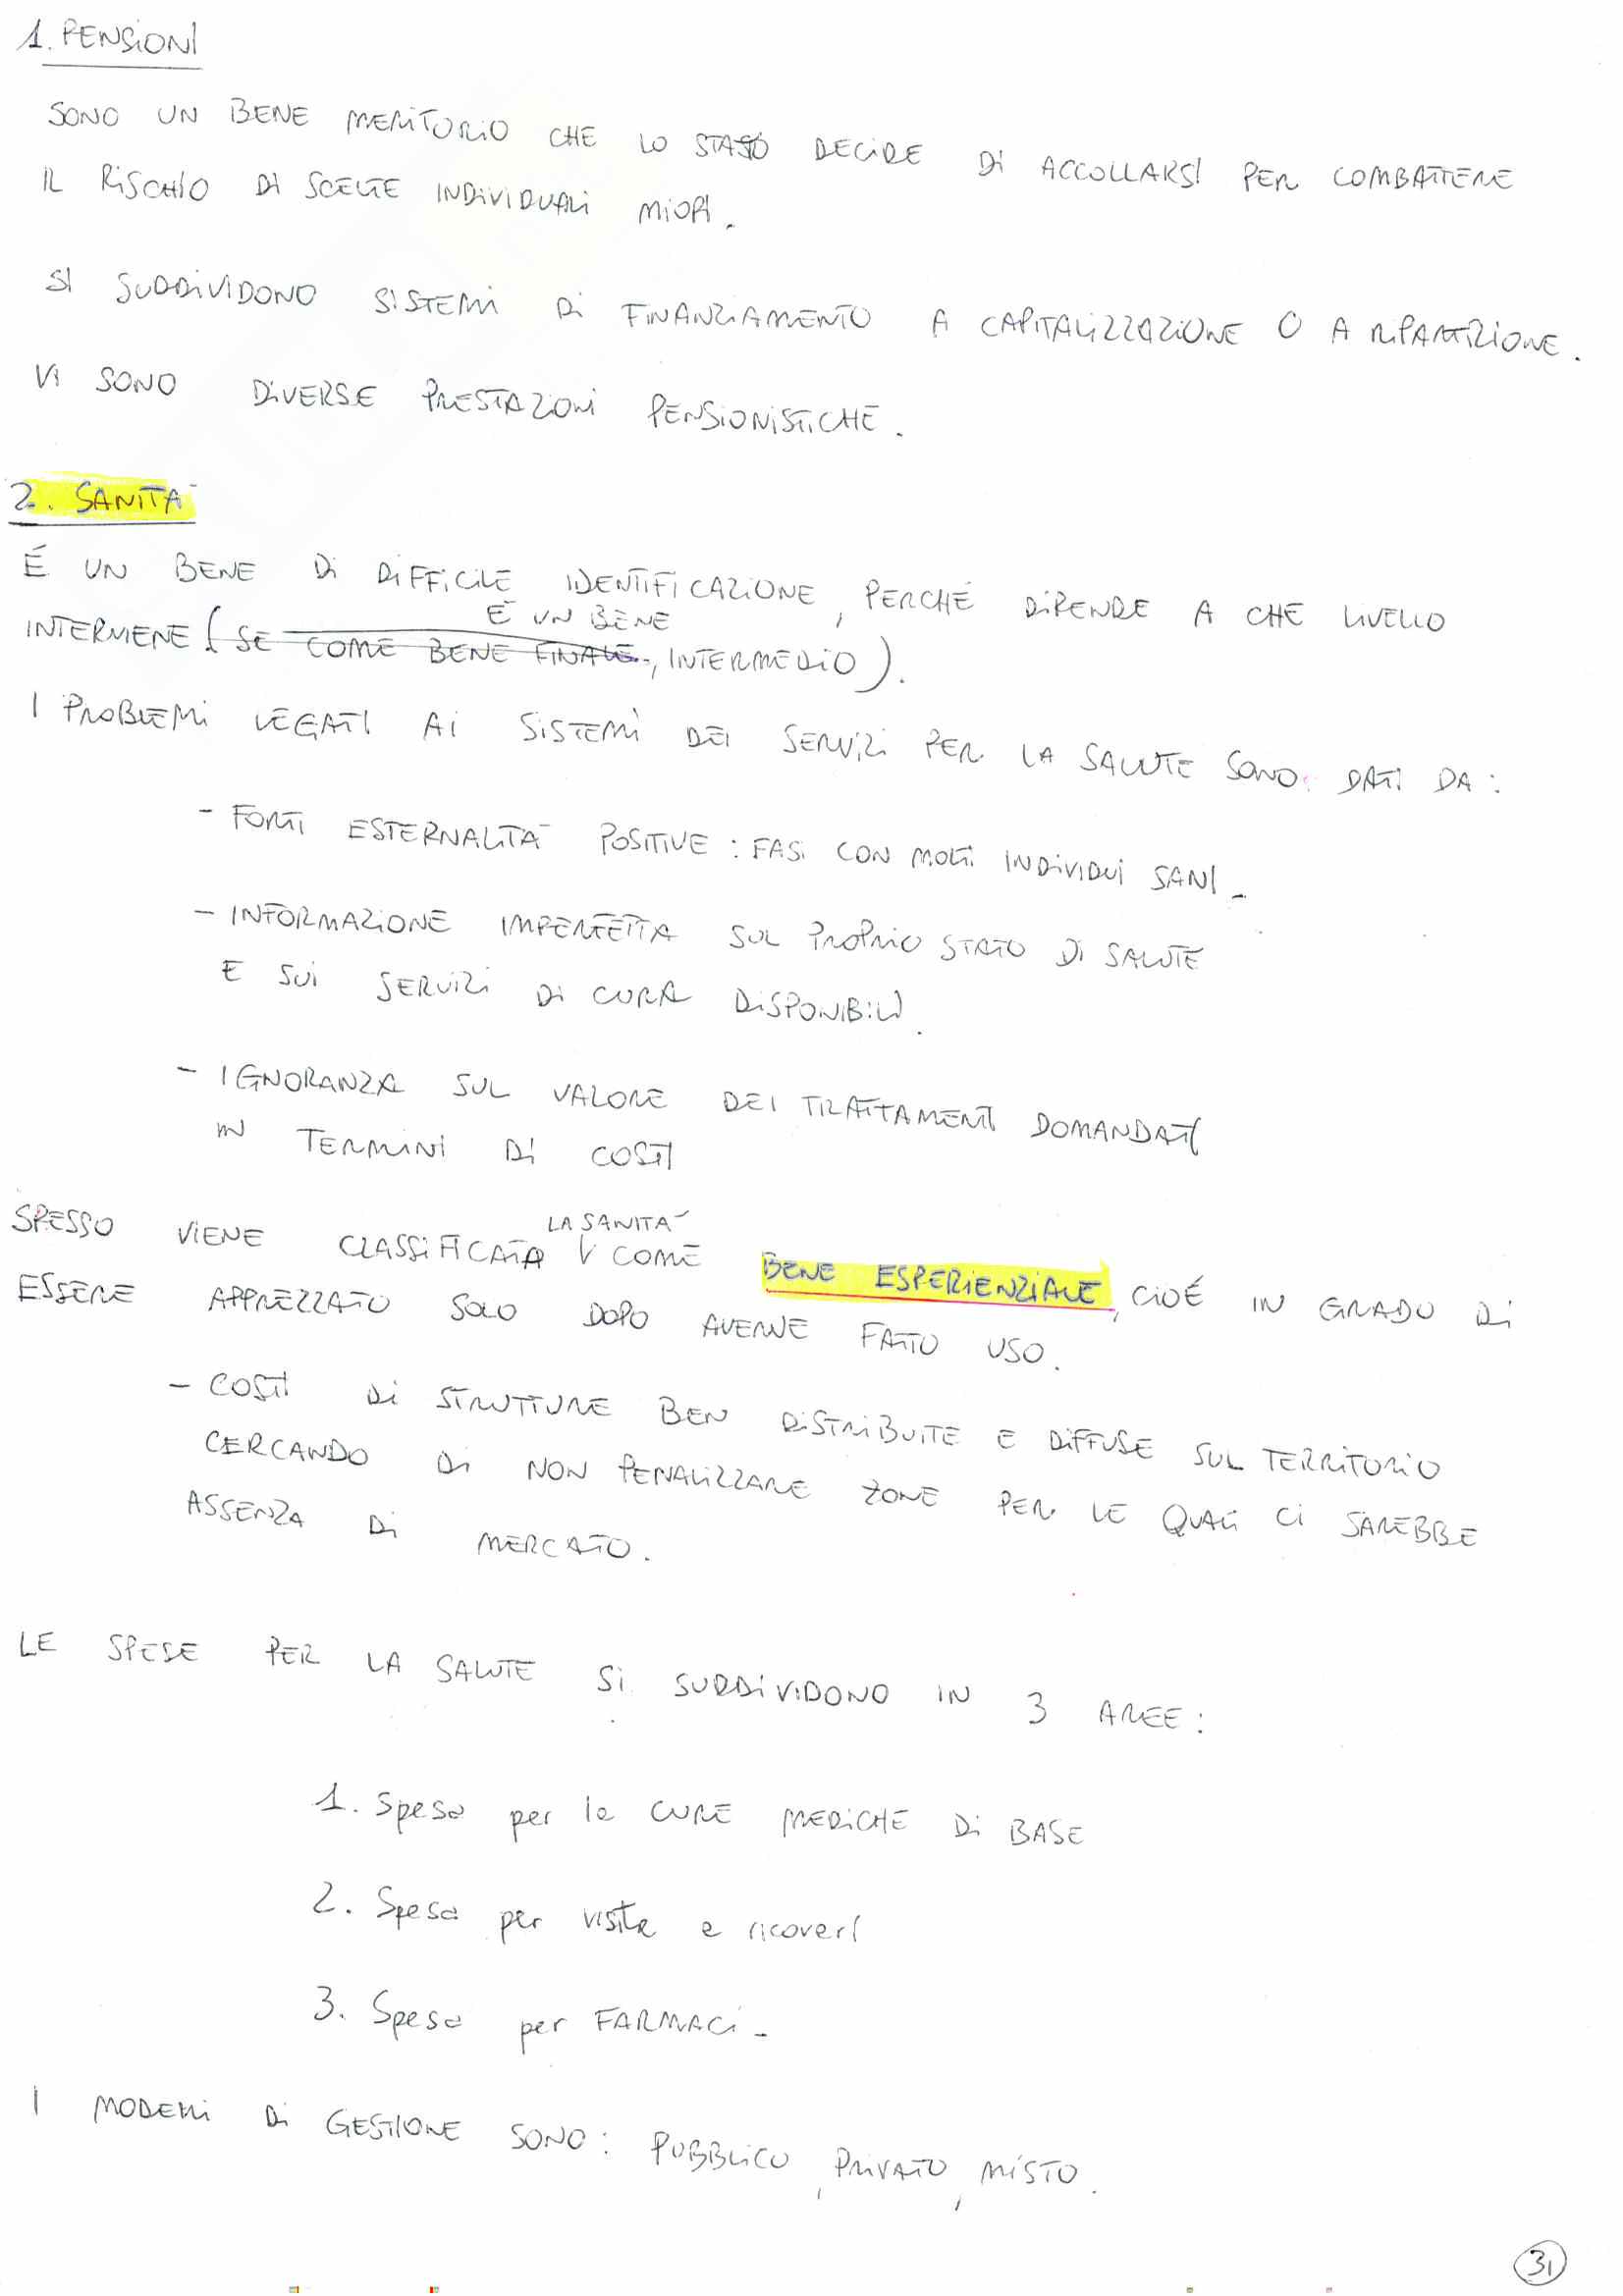 1. PENSIONI
SONO UN BENE MERITORIO CHE LO STATO DECIDE DI ACCOLLARSI PER COMBATTERE
IL RISCHIO DI SCELTE INDIVIDUALI MIOPI.
SI SUDDIVIDONO SISTEMI DI FINANZIAMENTO A CAPITALIZZAZIONE O A RIPARTIZIONE.
VI SONO DIVERSE PRESTAZIONI PENSIONISTICHE.
2. SANITÀ
É UN BENE DI DIFFICILE IDENTIFICAZIONE, PERCHÉ DIPENDE A CHE LIVELLO
È UN BENE
INTERVIENE (SE COME BENE FINALE, INTERMEDIO).
I PROBLEMI LEGATI AI SISTEMI DEI SERVIZI PER LA SALUTE SONO DATI DA:
- FORTI ESTERNALITÀ POSITIVE: FASI CON MOLTI INDIVIDUI SANI.
- INFORMAZIONE IMPERFETTA SUL PROPRIO STATO DI SALUTE
E SUI SERVIZI DI CURA DISPONIBILI.
- IGNORANZA SUL VALORE DEI TRATTAMENTI DOMANDATI
IN TERMINI DI COSTI
LA SANITÀ
SPESSO VIENE CLASSIFICATA V COME BENE ESPERIENZIALE, CIOÉ IN GRADO DI
ESSERE APPREZZATO SOLO DOPO AVERNE FATTO USO.
- COSTI DI STRUTTURE BEN DISTRIBUITE E DIFFUSE SUL TERRITORIO
CERCANDO DI NON PENALIZZARE ZONE PER LE QUALI CI SAREBBE
ASSENZA DI MERCATO.
LE SPESE PER LA SALUTE SI SUDDIVIDONO IN 3 AREE:
1. Spesa per le CURE MEDICHE DI BASE
2. Spesa per visite e ricoveri
3. Spesa per FARMACI.
I MODELLI DI GESTIONE SONO: PUBBLICO, PRIVATO, MISTO.
31